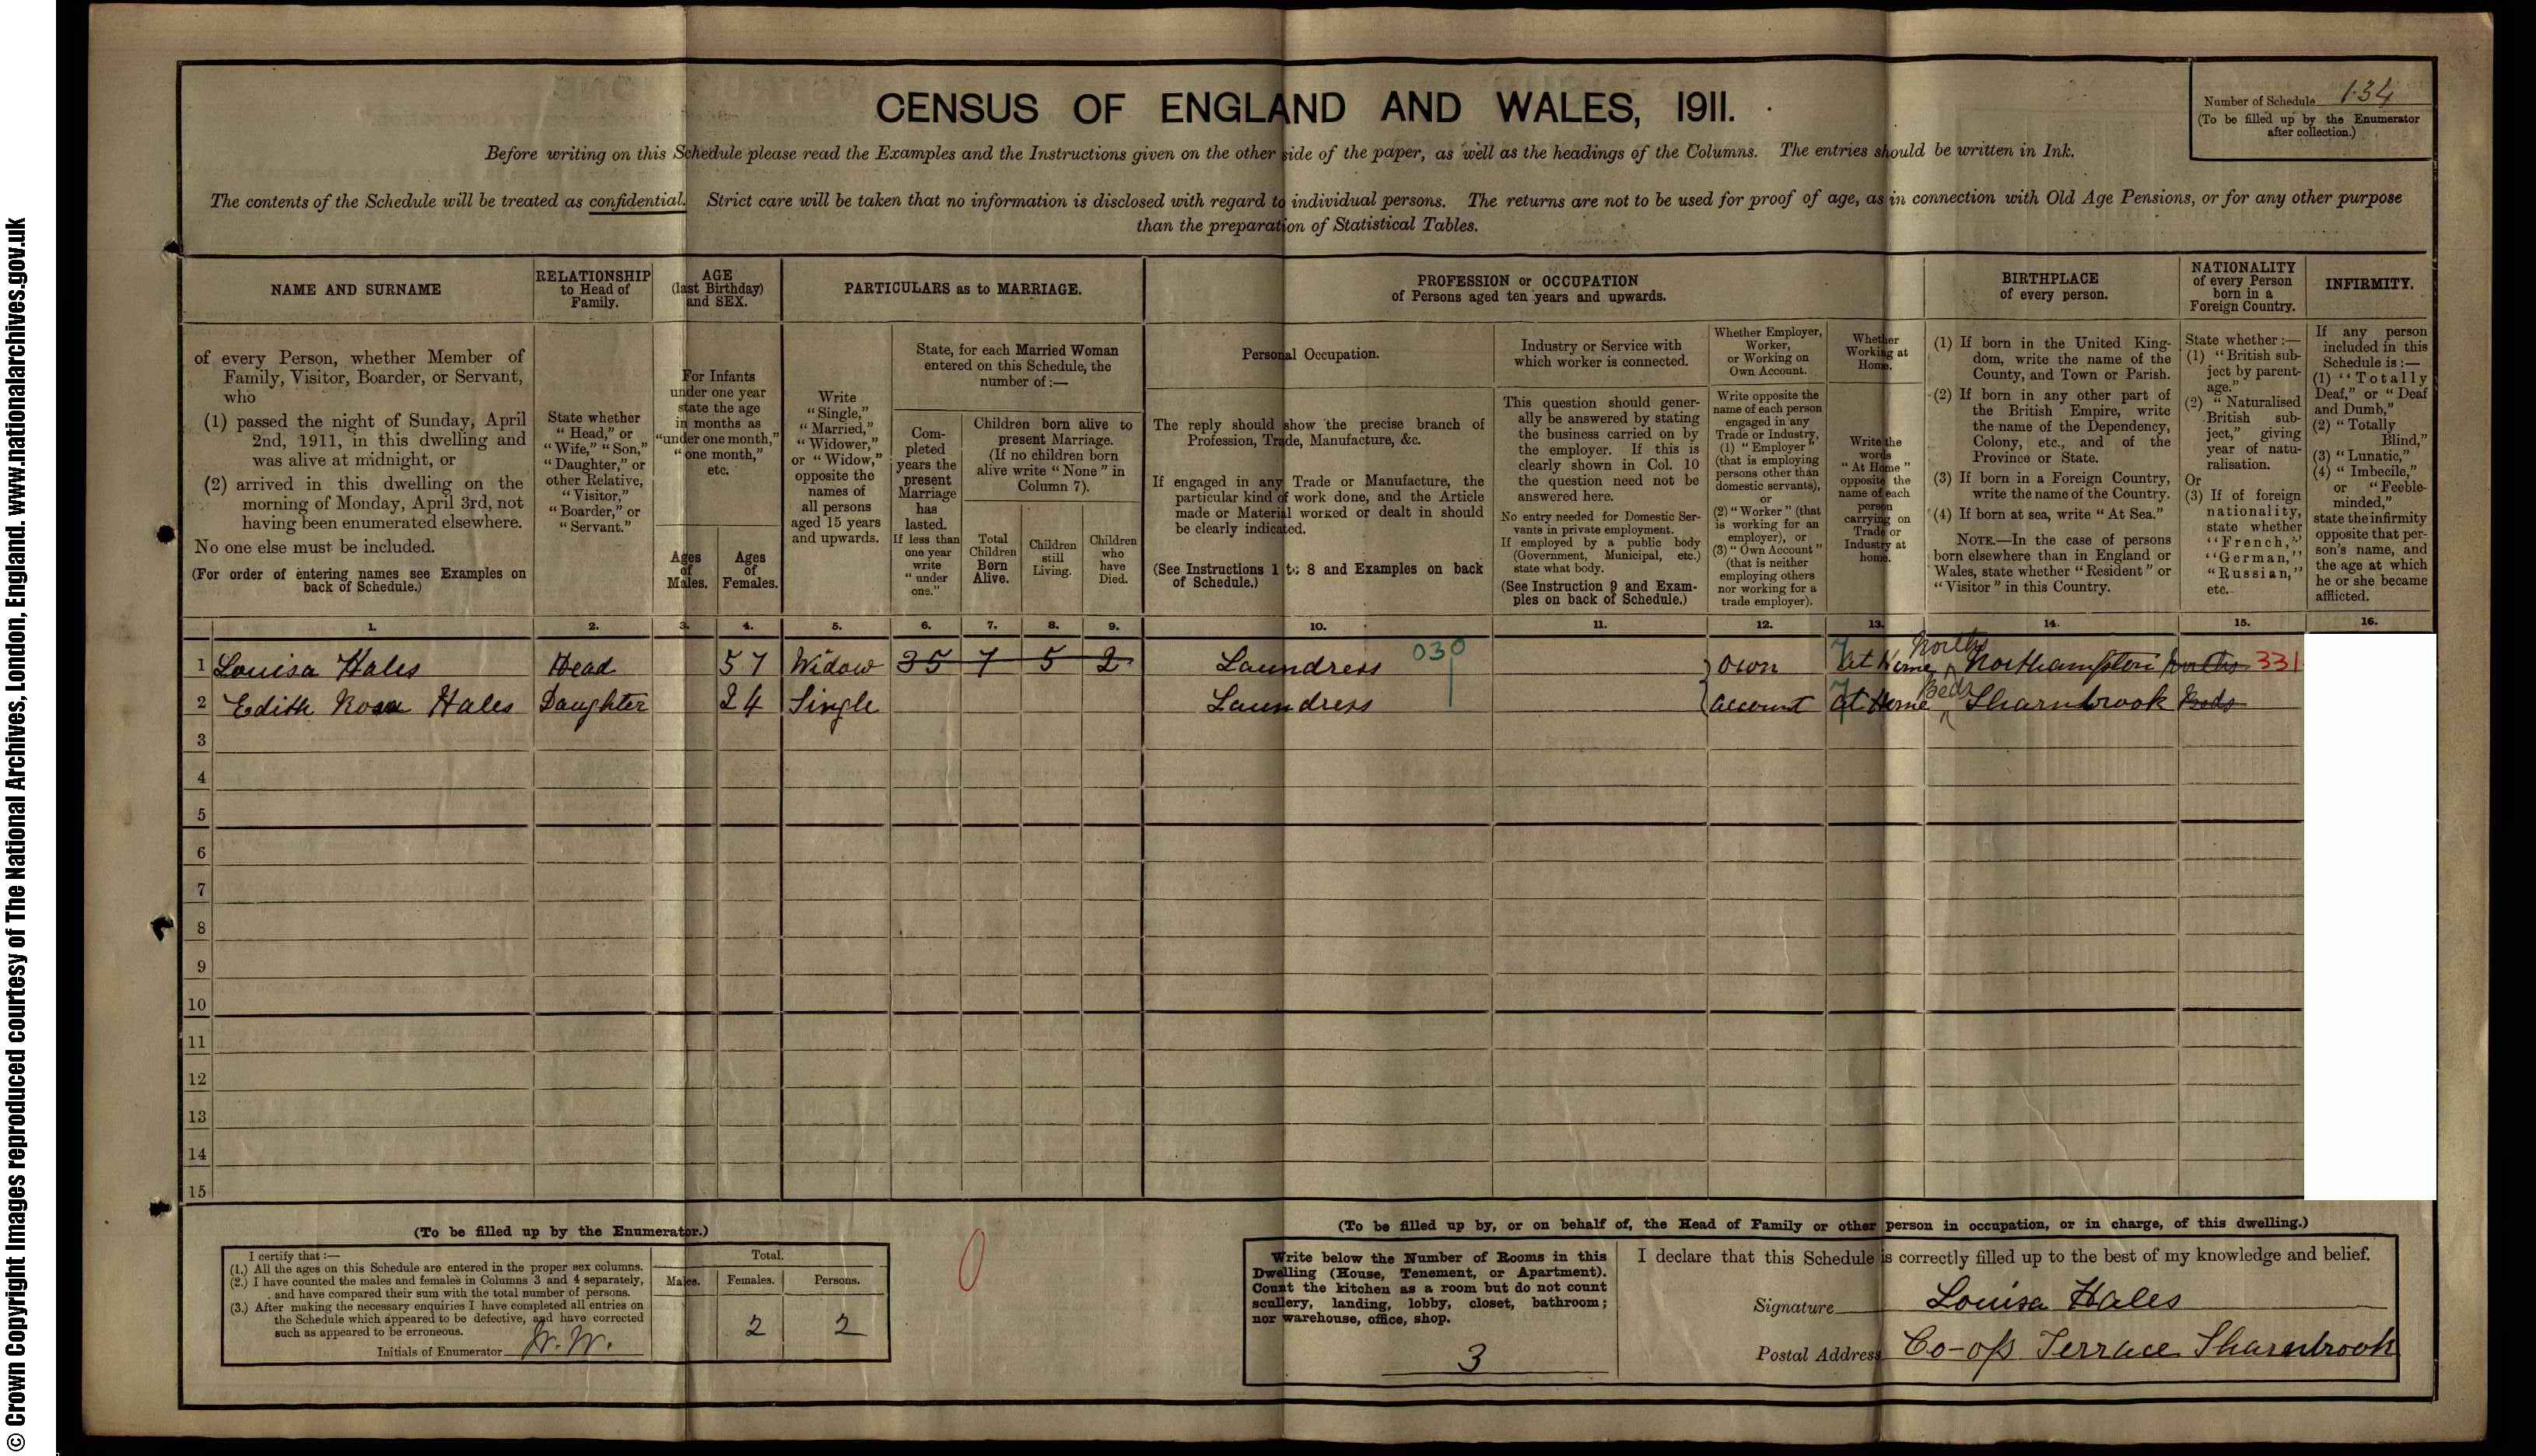 © Crown Copyright Images reproduced courtesy of The National Archives, London, England. www.nationalarchives.gov.uk
CENSUS OF ENGLAND AND WALES, 1911.
Number of Schedule 134
(To be filled up by the Enumerator
after collection.)
Before writing on this Schedule please read the Examples and the Instructions given on the other side of the paper, as well as the headings of the Columns. The entries should be written in Ink.
The contents of the Schedule will be treated as confidential. Strict care will be taken that no information is disclosed with regard to individual persons. The returns are not to be used for proof of age, as in connection with Old Age Pensions, or for any other purpose
than the preparation of Statistical Tables.
NAME AND SURNAME
of every Person, whether Member of
Family, Visitor, Boarder, or Servant,
who
(1) passed the night of Sunday, April
2nd, 1911, in this dwelling and
was alive at midnight, or
(2) arrived in this dwelling on the
morning of Monday, April 3rd, not
having been enumerated elsewhere.
No one else must be included.
(For order of entering names see Examples on
back of Schedule.)
RELATIONSHIP
to Head of
Family.
State whether
"Head," or
"Wife," "Son,"
"Daughter," or
other Relative,
"Visitor,"
"Boarder," or
"Servant."
AGE
(last Birthday)
and SEX.
For Infants
under one year
state the age
in months as
"under one month,"
"one month,"
etc.
Ages
of
Males.
Ages
of
Females.
PARTICULARS as to MARRIAGE.
Write
"Single,"
"Married,"
"Widower,"
or "Widow,"
opposite the
names of
all persons
aged 15 years
and upwards.
State, for each Married Woman
entered on this Schedule, the
number of :—
Com-
pleted
years the
present
Marriage
has
lasted.
If less than
one year
write
"under
one."
Children born alive to
present Marriage.
(If no children born
alive write "None" in
Column 7).
Total
Children
Born
Alive.
Children
still
Living.
Children
who
have
Died.
PROFESSION or OCCUPATION
of Persons aged ten years and upwards.
Personal Occupation.
The reply should show the precise branch of
Profession, Trade, Manufacture, &c.
If engaged in any Trade or Manufacture, the
particular kind of work done, and the Article
made or Material worked or dealt in should
be clearly indicated.
(See Instructions 1 to 8 and Examples on back
of Schedule.)
Industry or Service with
which worker is connected.
This question should gener-
ally be answered by stating
the business carried on by
the employer. If this is
clearly shown in Col. 10
the question need not be
answered here.
No entry needed for Domestic Ser-
vants in private employment.
If employed by a public body
(Government, Municipal, etc.)
state what body.
(See Instruction 9 and Exam-
ples on back of Schedule.)
Whether Employer,
Worker,
or Working on
Own Account.
Write opposite the
name of each person
engaged in any
Trade or Industry,
(1) "Employer"
(that is employing
persons other than
domestic servants),
or
(2) "Worker" (that
is working for an
employer), or
(3) "Own Account"
(that is neither
employing others
nor working for a
trade employer).
Whether
Working at
Home.
Write the
words
"At Home"
opposite the
name of each
person
carrying on
Trade or
Industry at
home.
BIRTHPLACE
of every person.
(1) If born in the United King-
dom, write the name of the
County, and Town or Parish.
(2) If born in any other part of
the British Empire, write
the name of the Dependency,
Colony, etc., and of the
Province or State.
(3) If born in a Foreign Country,
write the name of the Country.
(4) If born at sea, write "At Sea."
NOTE.—In the case of persons
born elsewhere than in England or
Wales, state whether "Resident" or
"Visitor" in this Country.
NATIONALITY
of every Person
born in a
Foreign Country.
State whether :—
(1) "British sub-
ject by parent-
age."
(2) "Naturalised
British sub-
ject," giving
year of natu-
ralisation.
Or
(3) If of foreign
nationality,
state whether
"French,"
"German,"
"Russian,"
etc.
INFIRMITY.
If any person
included in this
Schedule is :—
(1) "Totally
Deaf," or "Deaf
and Dumb,"
(2) "Totally
Blind,"
(3) "Lunatic,"
(4) "Imbecile,"
or "Feeble-
minded,"
state the infirmity
opposite that per-
son's name, and
the age at which
he or she became
afflicted.
1. 2. 3. 4. 5. 6. 7. 8. 9. 10. 11. 12. 13. 14. 15. 16.
1 Louisa Hales Head 57 Widow 35 7 5 2 Laundress 030 own At Home Norths Northampton Norths 331
2 Edith Rosa Hales Daughter 24 Single Laundress account At Home Beds Sharnbrook Beds
3
4
5
6
7
8
9
10
11
12
13
14
15
(To be filled up by the Enumerator.)
I certify that :—
(1.) All the ages on this Schedule are entered in the proper sex columns.
(2.) I have counted the males and females in Columns 3 and 4 separately,
and have compared their sum with the total number of persons.
(3.) After making the necessary enquiries I have completed all entries on
the Schedule which appeared to be defective, and have corrected
such as appeared to be erroneous.
Initials of Enumerator W. W.
Total.
Males. Females. Persons.
2 2
0
(To be filled up by, or on behalf of, the Head of Family or other person in occupation, or in charge, of this dwelling.)
Write below the Number of Rooms in this
Dwelling (House, Tenement, or Apartment).
Count the kitchen as a room but do not count
scullery, landing, lobby, closet, bathroom;
nor warehouse, office, shop.
3
I declare that this Schedule is correctly filled up to the best of my knowledge and belief.
Signature Louisa Hales
Postal Address Co-op Terrace Sharnbrook